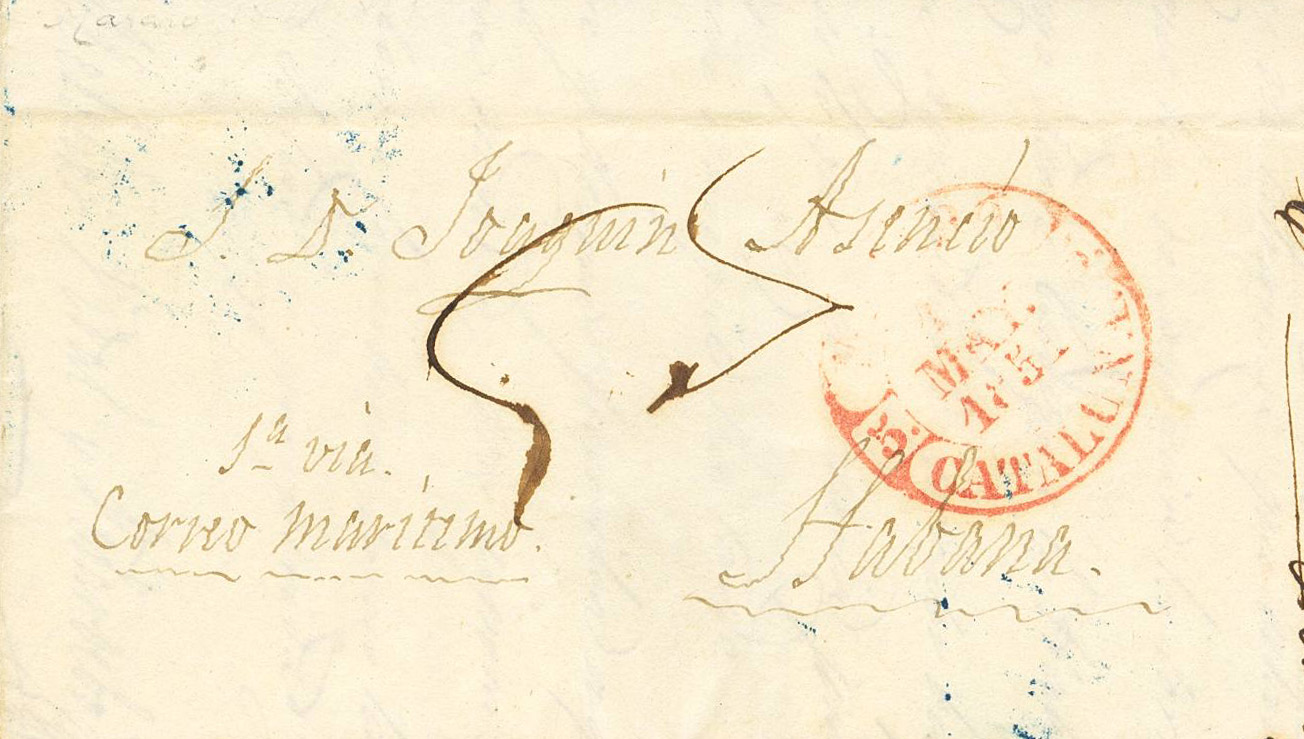 S. D. Joaquin Asencio
1ª via.
Correo maritimo.
Habana.
MAY.
CATALUÑA